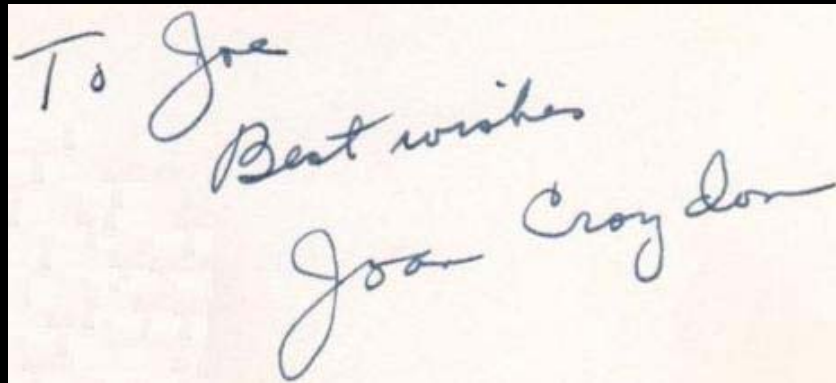 To Joe
Best wishes
Joan Croydon